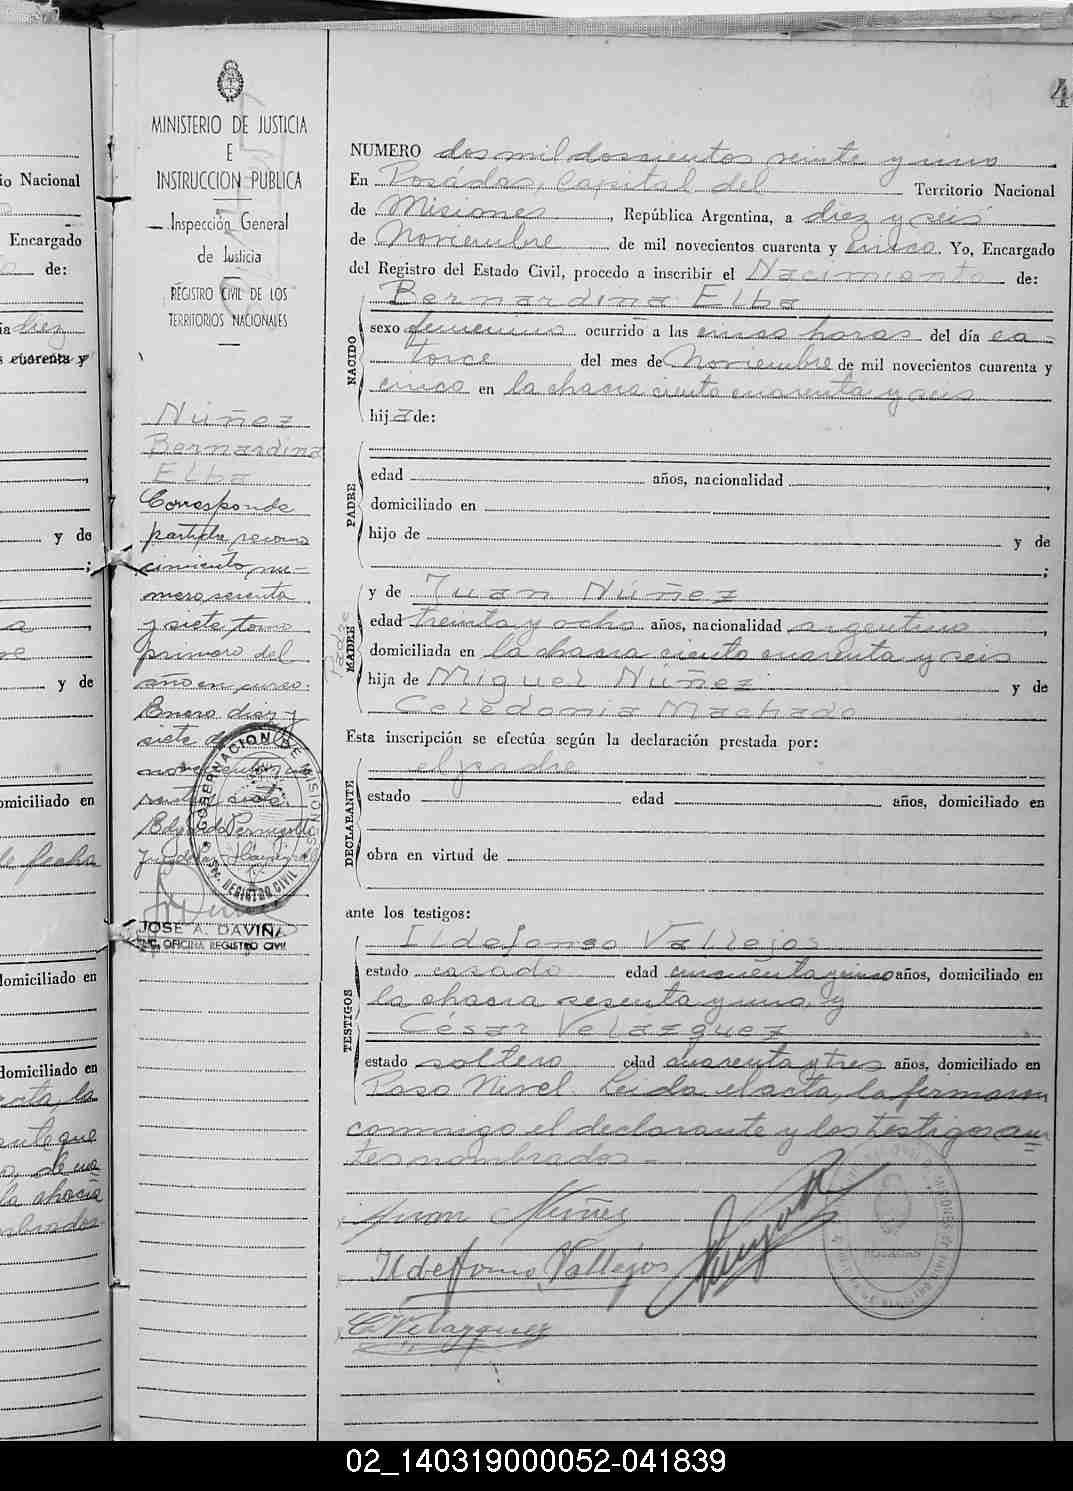 4
MINISTERIO DE JUSTICIA
E
INSTRUCCION PUBLICA
Inspección General
de Justicia
REGISTRO CIVIL DE LOS
TERRITORIOS NACIONALES
Núñez
Bernardina
Elba
Corresponde
partida recono
cimiento nu-
mero sesenta
y siete tomo
primero del
año en curso.
Enero diez y
siete de mil
novecientos cua
renta y siete.
Edgardo
GOBERNACION DE MISIONES
REGISTRO CIVIL
JOSE A. DAVIÑA
OFICINA REGISTRO CIVIL
NUMERO dos mil doscientos veinte y uno
En Posadas, Capital del Territorio Nacional
de Misiones, República Argentina, a diez y seis
de Noviembre de mil novecientos cuarenta y cinco. Yo, Encargado
del Registro del Estado Civil, procedo a inscribir el Nacimiento de:
NACIDO
Bernardina Elba
sexo femenino ocurrido a las cinco horas del día ca-
torce del mes de Noviembre de mil novecientos cuarenta y
cinco en la chacra ciento cuarenta y seis
hija de:
PADRE
edad años, nacionalidad ,
domiciliado en
hijo de y de
;
Padre
MADRE
y de Juan Núñez
edad treinta y ocho años, nacionalidad argentino,
domiciliada en la chacra ciento cuarenta y seis
hija de Miguel Núñez y de
Celedonia Machado
Esta inscripción se efectúa según la declaración prestada por:
DECLARANTE
el padre
estado edad años, domiciliado en
obra en virtud de
ante los testigos:
TESTIGOS
Ildefonso Vallejos
estado casado edad cincuenta y cinco años, domiciliado en
la chacra sesenta y uno, y
César Velazquez
estado soltero edad cuarenta y tres años, domiciliado en
Paso Nivel. Leida el acta, la firmaron
conmigo el declarante y los testigos an
tes nombrados.-
Juan Núñez
Ildefonso Vallejos
C. Velazquez
io Nacional
Encargado
de:
diez
cuarenta y
y de
;
y de
omiciliado en
de fecha
domiciliado en
domiciliado en
la chacra
nombrados
02_140319000052-041839